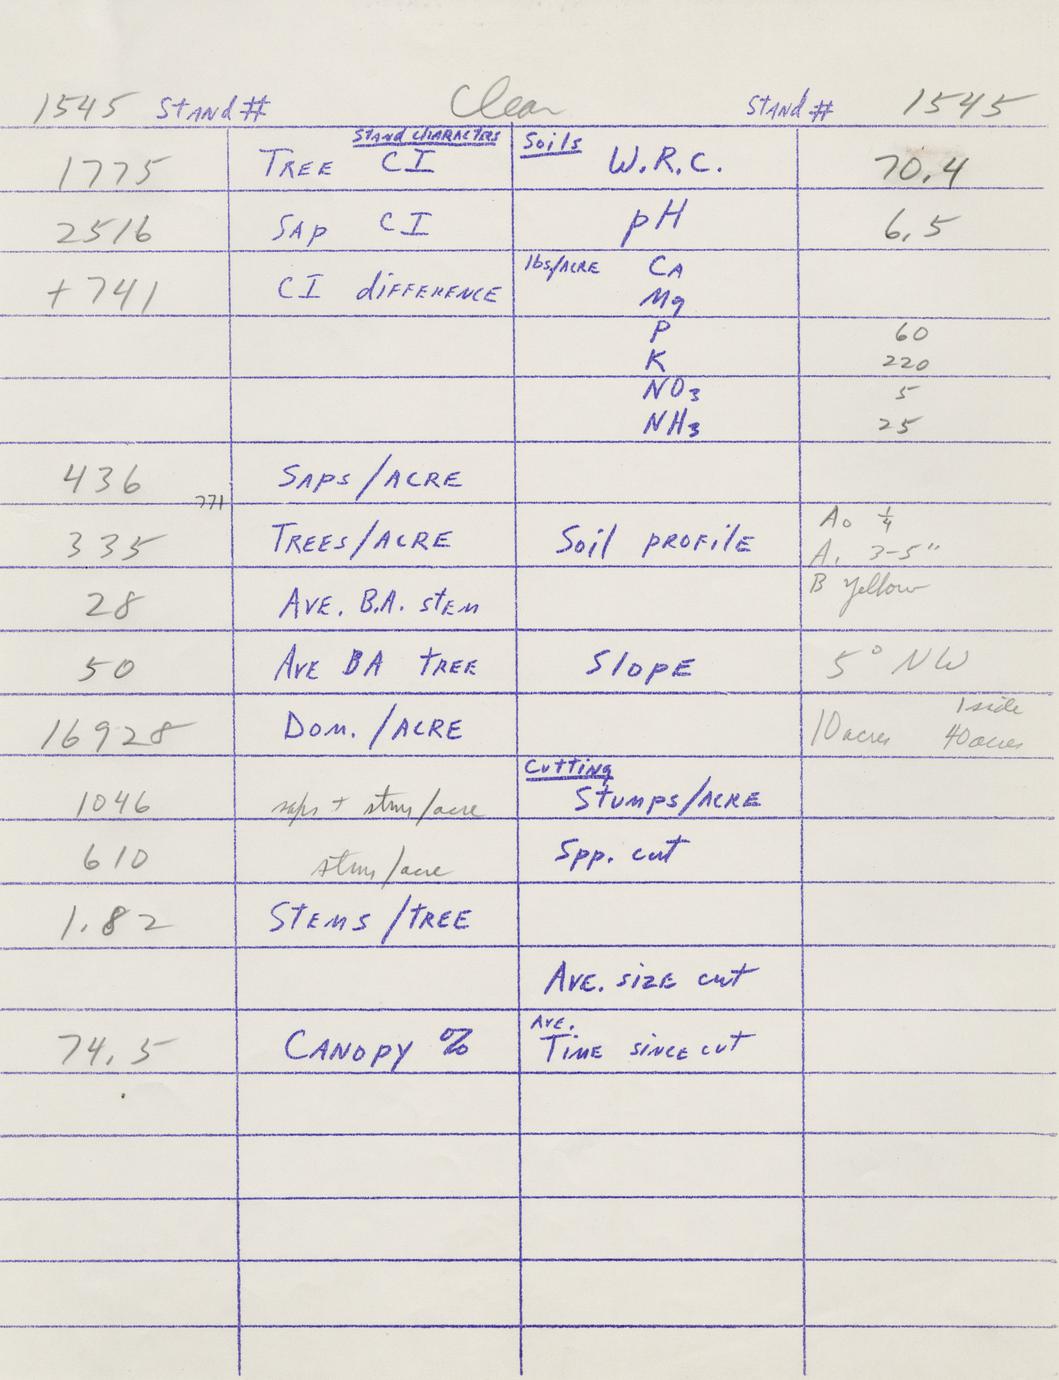 1545 Stand # Clear Stand # 1545
Stand Characters Soils
1775 Tree CI W.R.C. 70.4
2516 Sap CI pH 6.5
+741 CI difference lbs/Acre Ca
Mg
P 60
K 220
NO3 5
NH3 25
436 Saps/Acre
771
335 Trees/Acre Soil profile A0 1/4
A1 3-5"
28 Ave. B.A. stem B Yellow
50 Ave BA tree Slope 5° NW
16928 Dom./Acre 10 acres 1 side 40 acres
Cutting
1046 saps + stms/acre Stumps/Acre
610 stms/acre Spp. cut
1.82 Stems/tree
Ave. size cut
74.5 Canopy % Ave. Time since cut